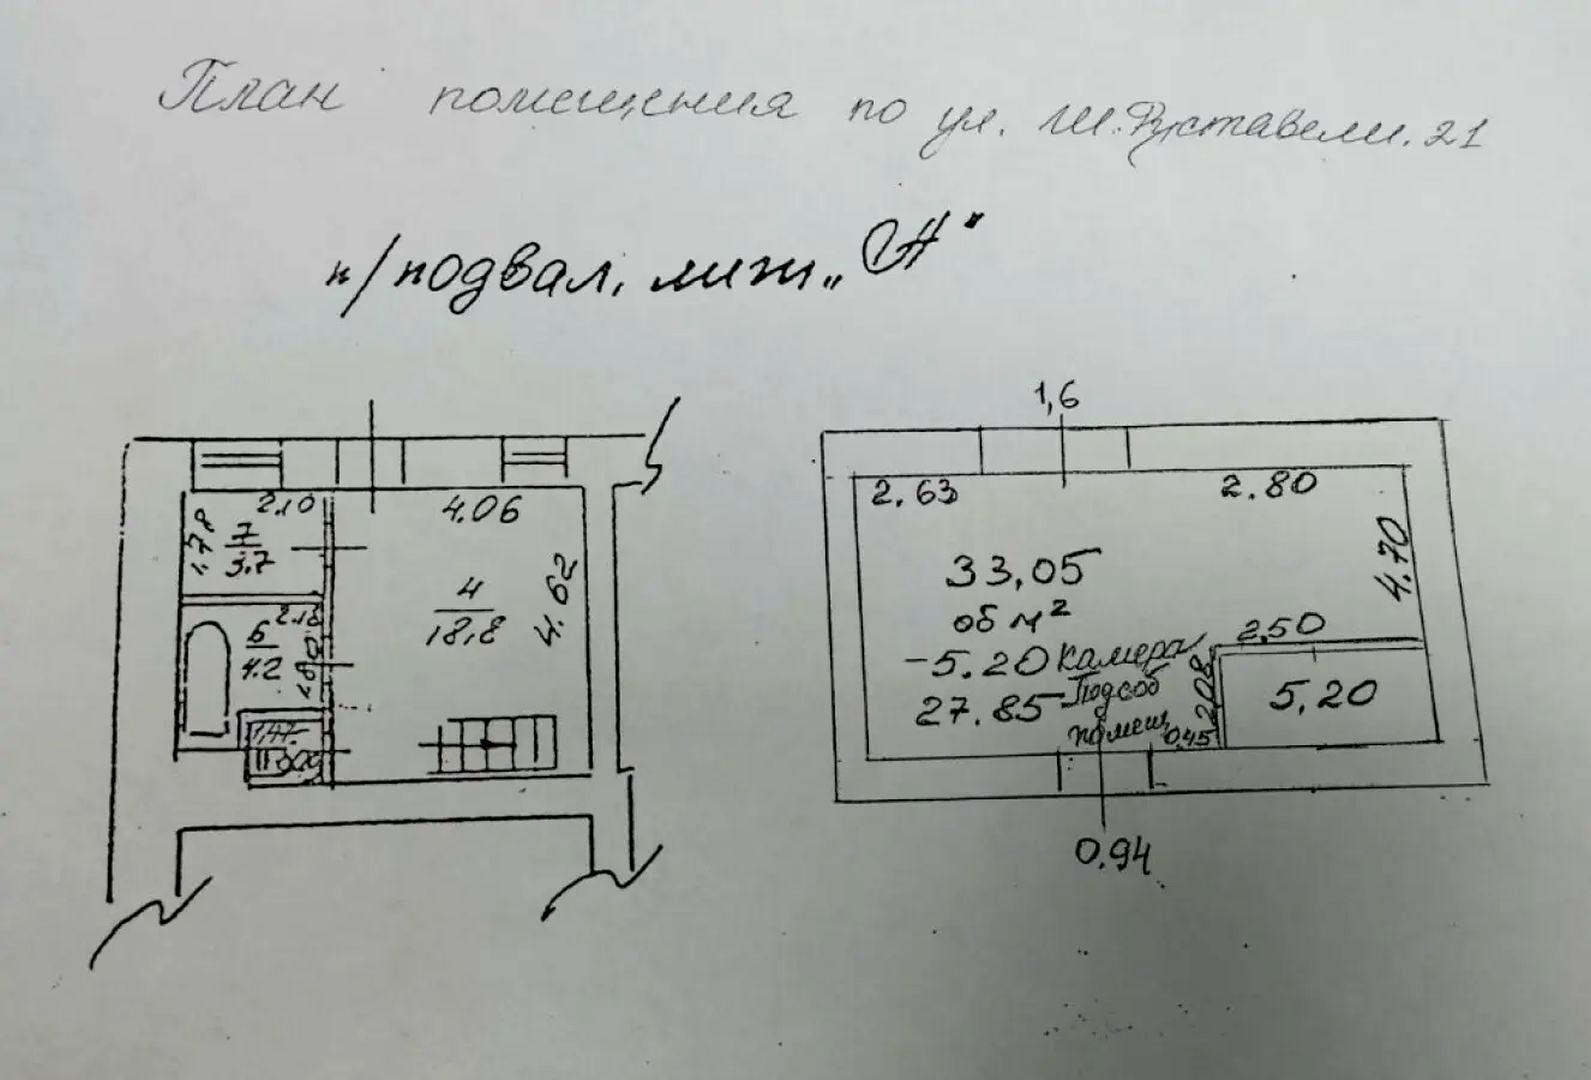 План помещения по ул. Ш.Руставели. 21
п/подвал, лит „Н"
2.10
4.06
1.78
7
3.7
4
18,8
4.62
2.18
6
4.2
1,6
2.63
2.80
33,05
об м²
4.70
-5.20 камера
27.85 Подсоб
помещ
2,50
2,08
5,20
0,45
0,94